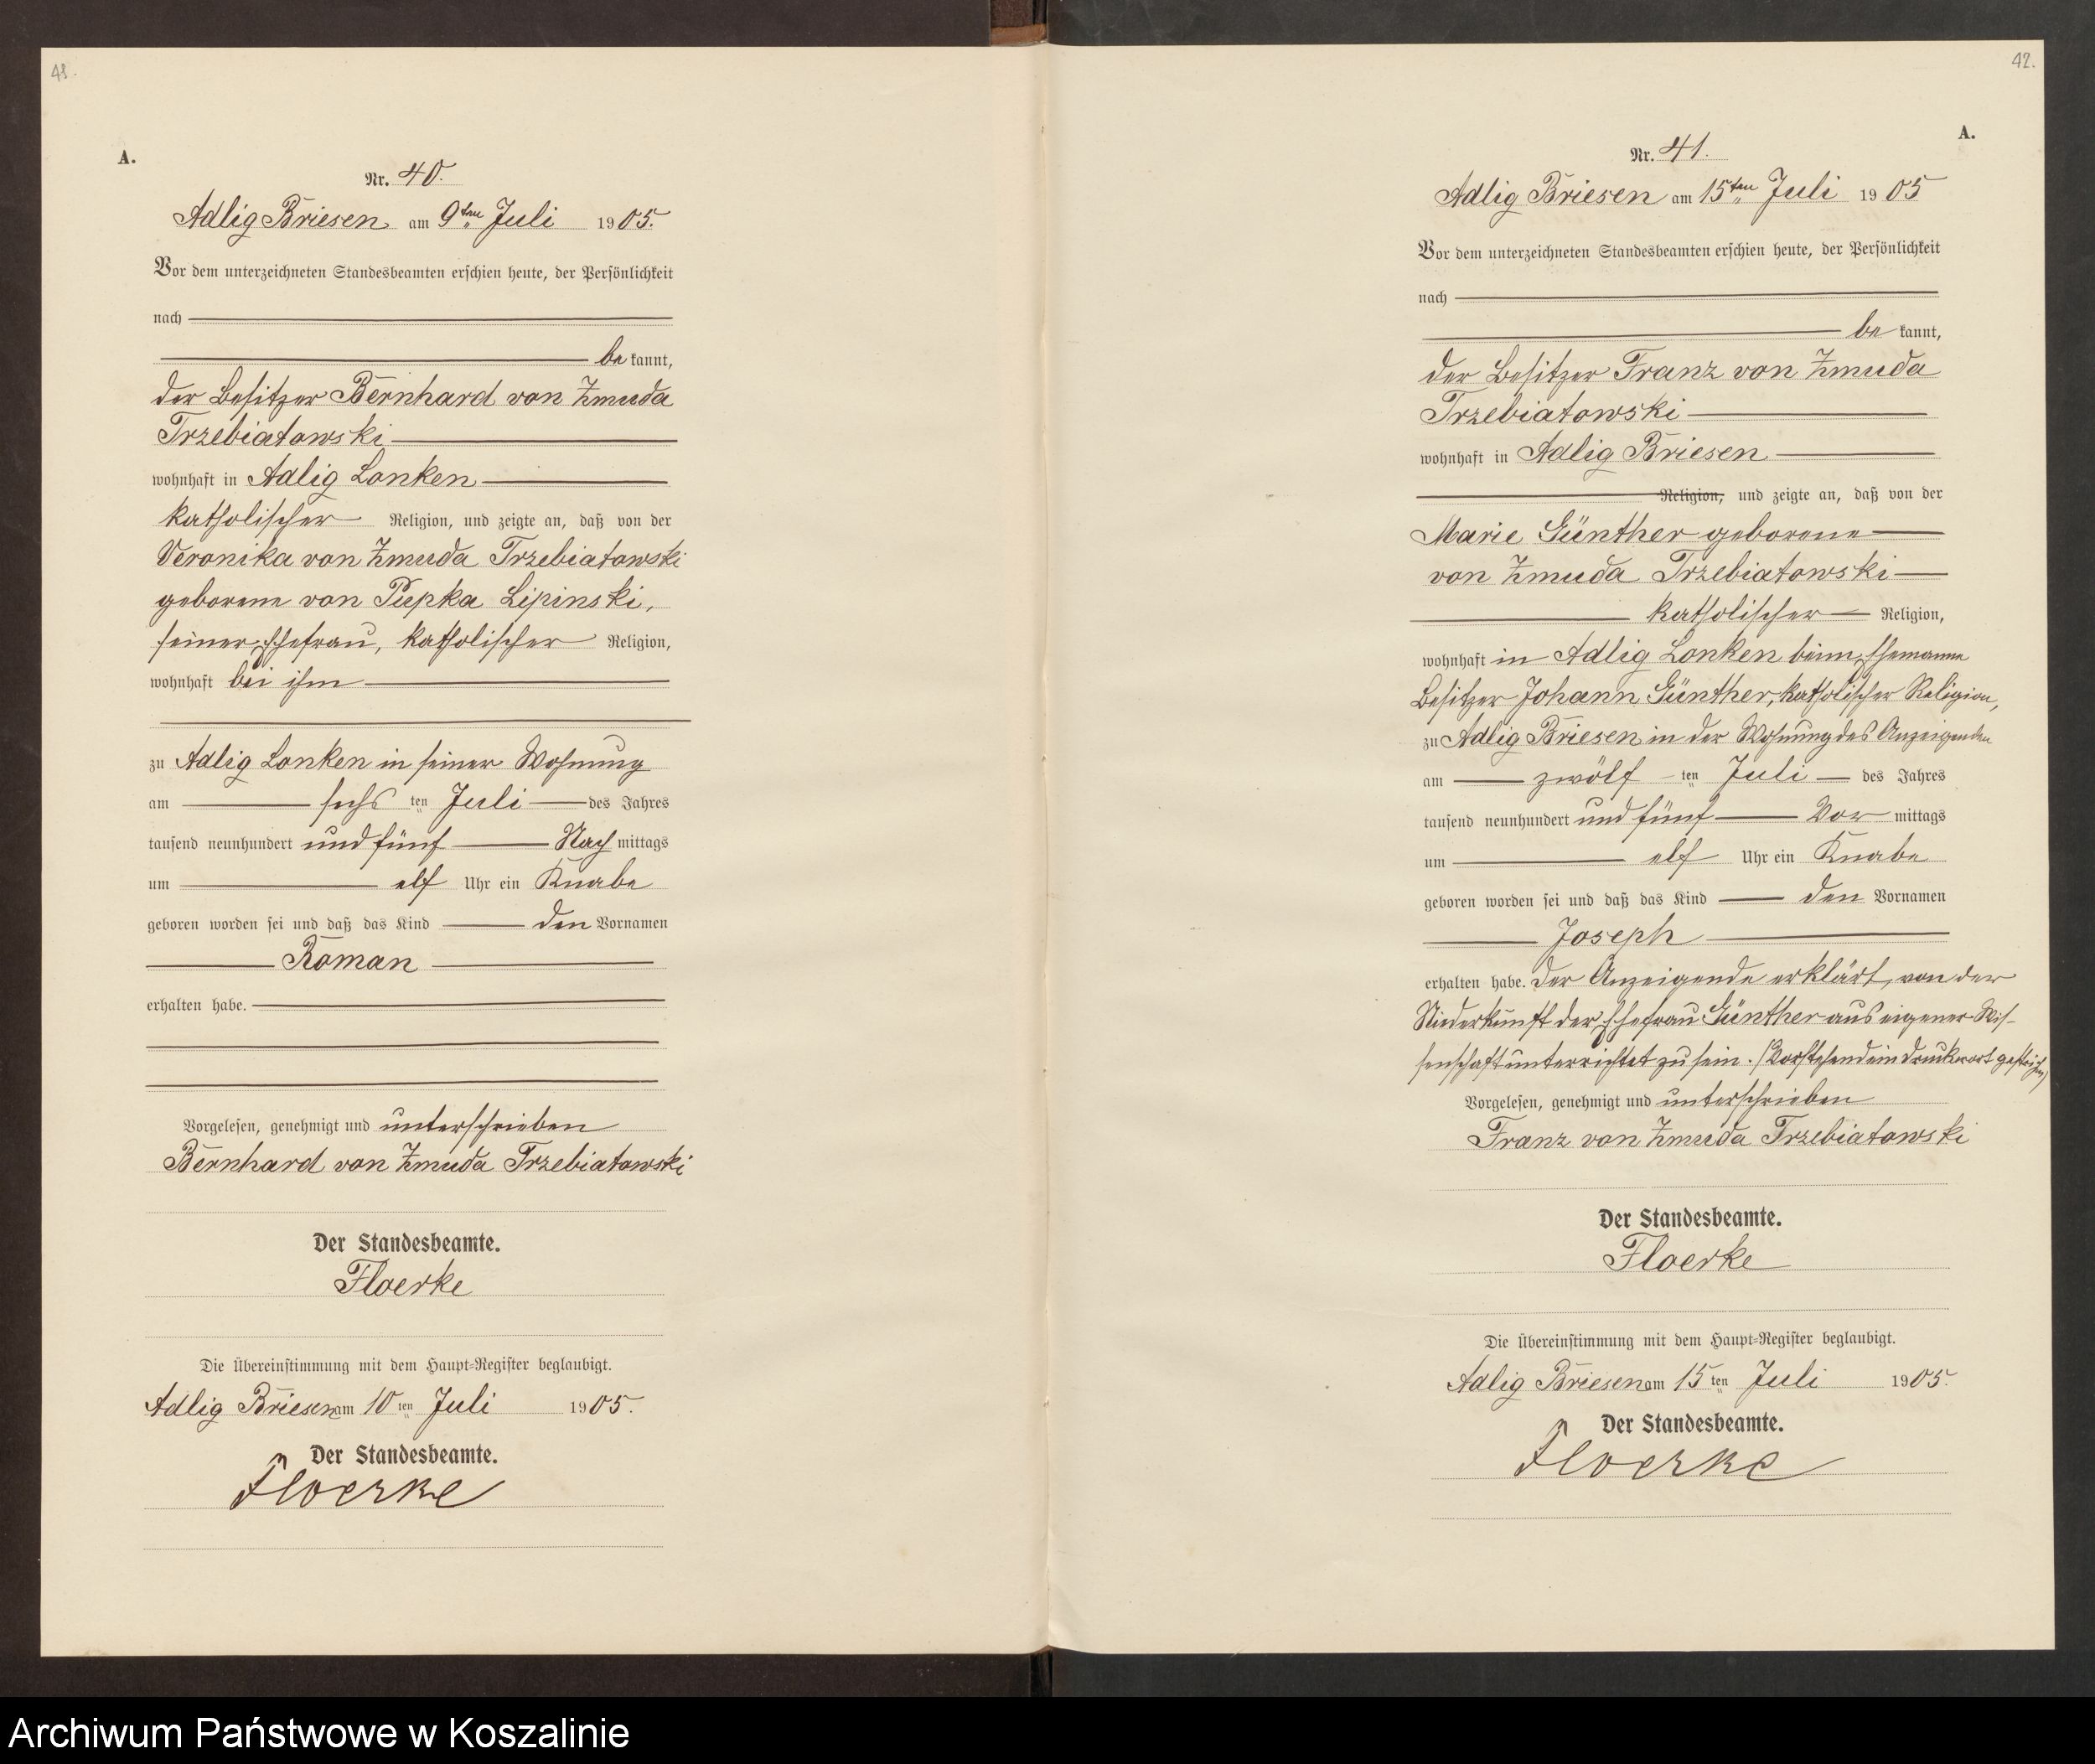 41.
A.
Nr. 40.
Adlig Briesen am 9ten Juli 1905.
Vor dem unterzeichneten Standesbeamten erschien heute, der Persönlichkeit
nach
be kannt,
der Besitzer Bernhard von Zmuda
Trzebiatowski
wohnhaft in Adlig Lonken
katholischer Religion, und zeigte an, daß von der
Veronika von Zmuda Trzebiatowski
geborene von Piepka Lipinski,
seiner Ehefrau, katholischer Religion,
wohnhaft bei ihm
zu Adlig Lonken in seiner Wohnung
am sechs ten Juli des Jahres
tausend neunhundert und fünf Nach mittags
um elf Uhr ein Knabe
geboren worden sei und daß das Kind den Vornamen
Roman
erhalten habe.
Vorgelesen, genehmigt und unterschrieben
Bernhard von Zmuda Trzebiatowski
Der Standesbeamte.
Floerke
Die Übereinstimmung mit dem Haupt-Register beglaubigt.
Adlig Briesen am 10 ten Juli 1905.
Der Standesbeamte.
Floerke
42.
A.
Nr. 41.
Adlig Briesen am 15ten Juli 1905
Vor dem unterzeichneten Standesbeamten erschien heute, der Persönlichkeit
nach
be kannt,
der Besitzer Franz von Zmuda
Trzebiatowski
wohnhaft in Adlig Briesen
Religion, und zeigte an, daß von der
Marie Günther geborene
von Zmuda Trzebiatowski
katholischer Religion,
wohnhaft in Adlig Lonken beim Ehemanne
Besitzer Johann Günther, katholischer Religion,
zu Adlig Briesen in der Wohnung des Anzeigenden
am zwölf ten Juli des Jahres
tausend neunhundert und fünf Vor mittags
um elf Uhr ein Knabe
geboren worden sei und daß das Kind den Vornamen
Joseph
erhalten habe. Der Anzeigende erklärt, von der
Niederkunft der Ehefrau Günther aus eigener Wis-
senschaft unterrichtet zu sein. (Vorstehend ein Druckwort gestrichen)
Vorgelesen, genehmigt und unterschrieben
Franz von Zmuda Trzebiatowski
Der Standesbeamte.
Floerke
Die Übereinstimmung mit dem Haupt-Register beglaubigt.
Adlig Briesen am 15 ten Juli 1905.
Der Standesbeamte.
Floerke
Archiwum Państwowe w Koszalinie